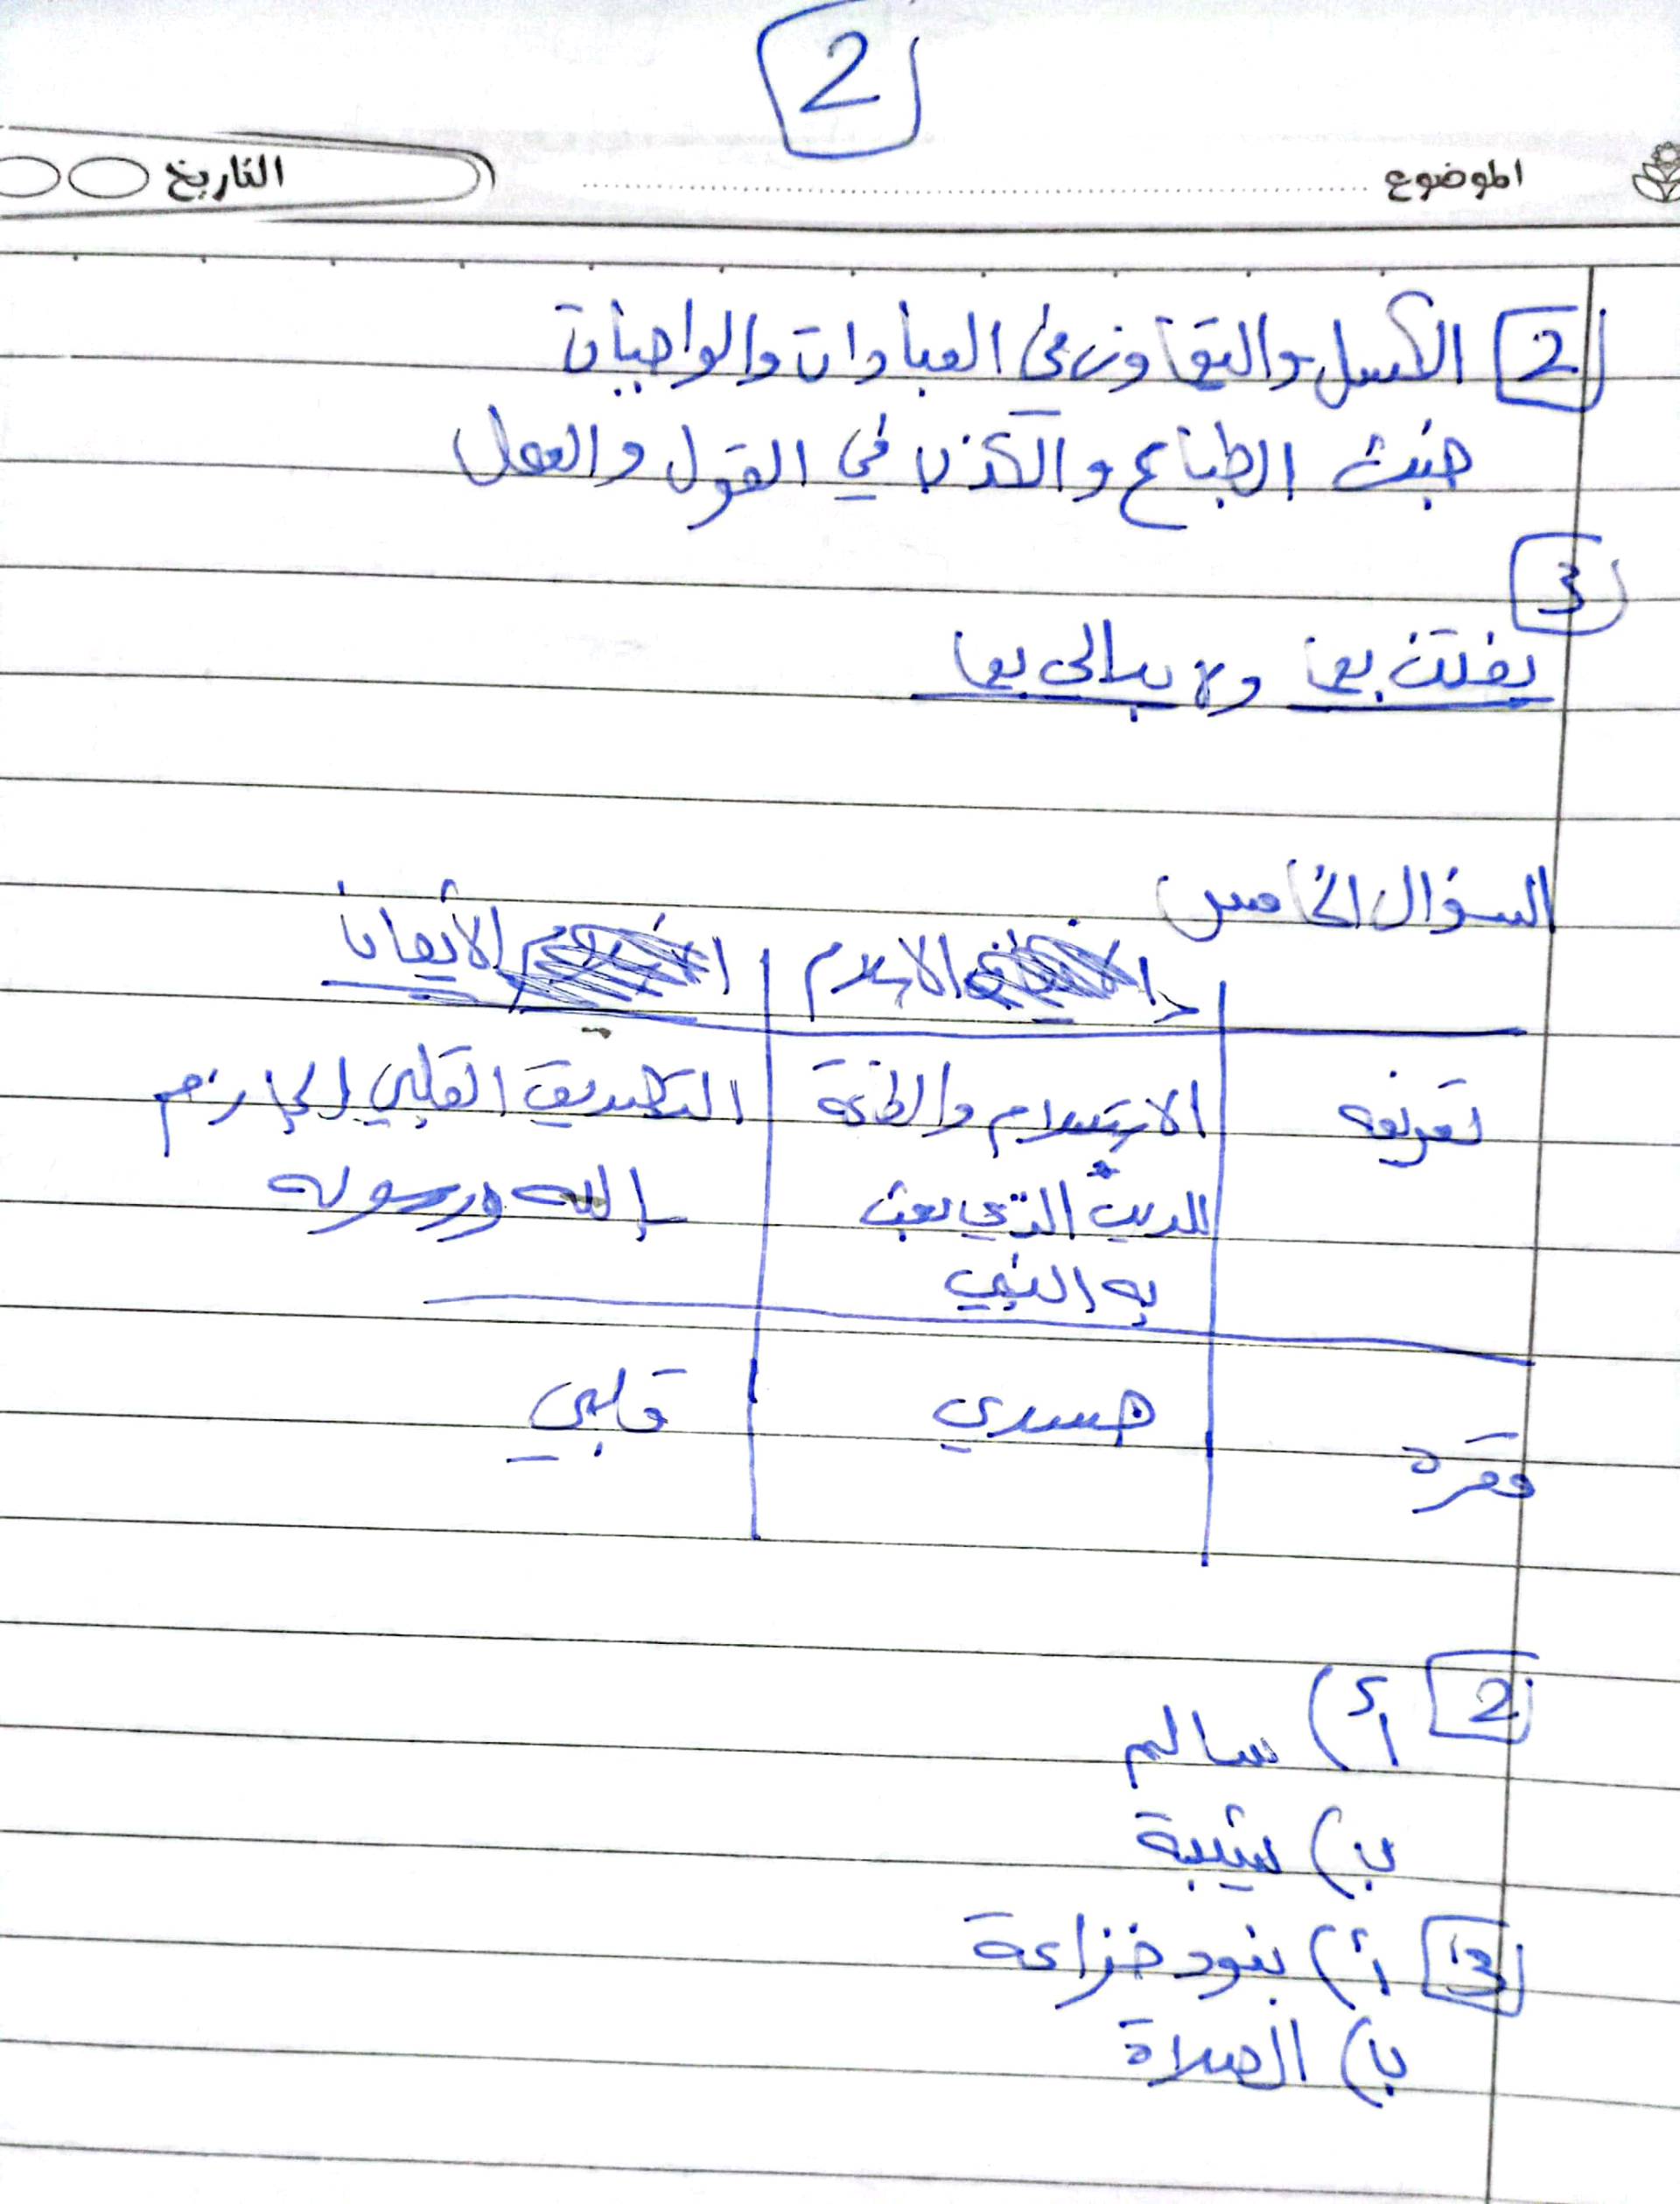 2
الموضوع
التاريخ
2 الكسل والتهاون في العبادات والواجبات
خبث الطباع والكذب في القول والعمل
3
يفتتن بها ولا يبالي بها
السؤال الخامس
الاسلام
الأيمان
تعريفه
الاستسلام والطاعة
للدين الذي بعث
به النبي
التصديق القلبي الجازم
بالله ورسوله
مقره
جسدي
قلبي
2 أ) سالم
ب) شيبة
3 أ) بنود خزاعة
ب) الصلاة